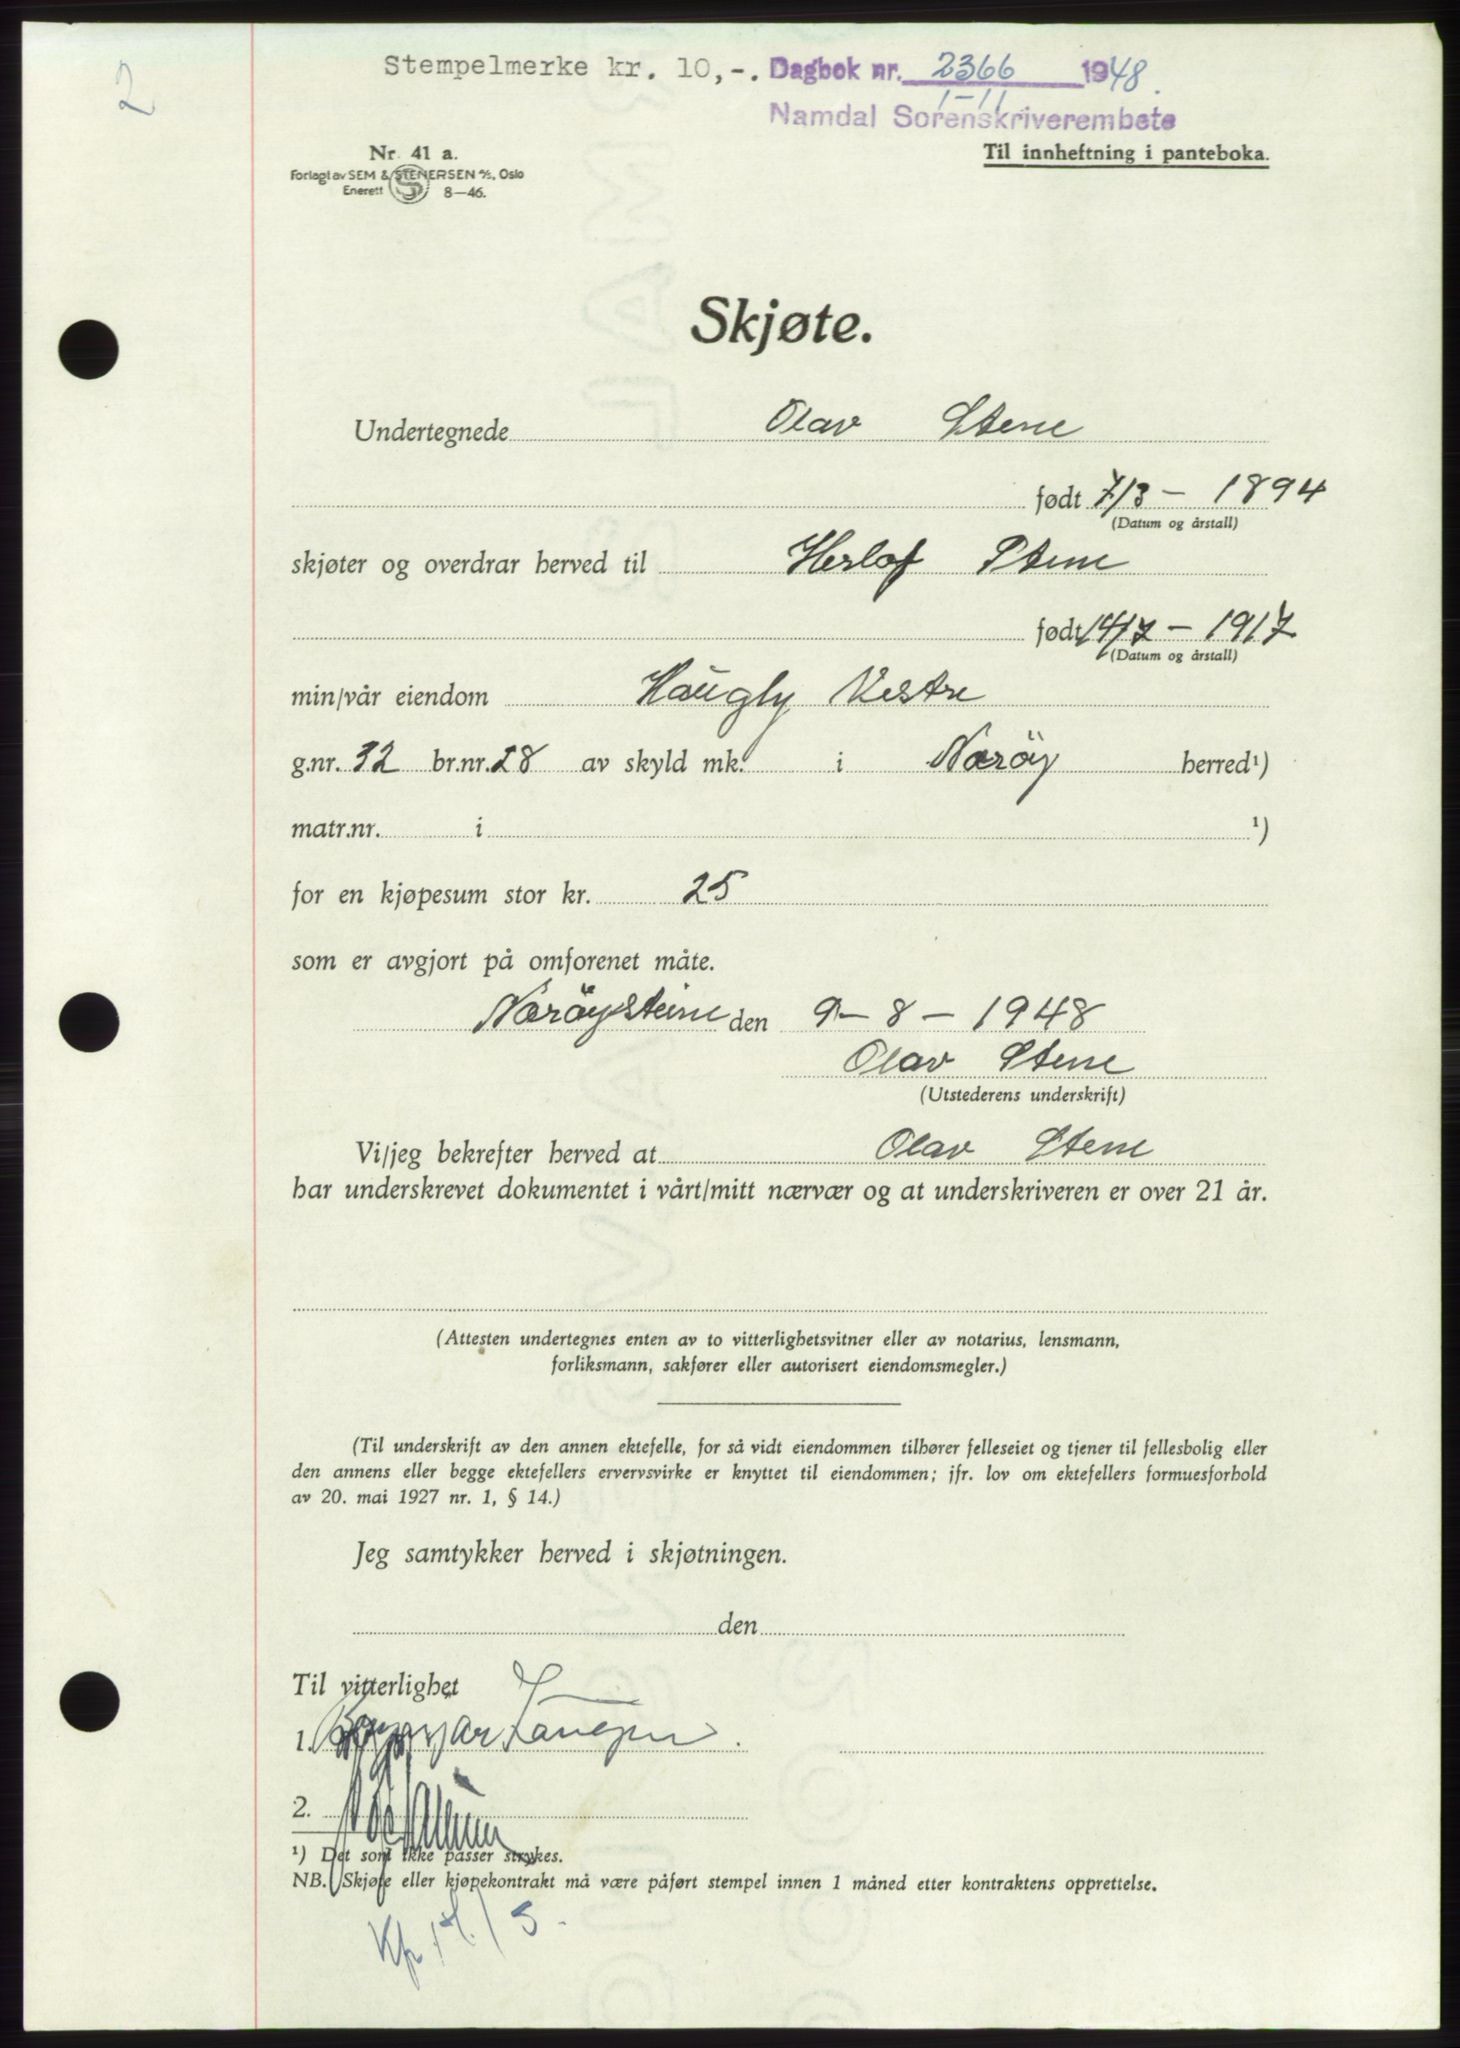 2
Stempelmerke kr. 10,-. Dagbok nr. 2366 1948.
1-11
Namdal Sorenskriverembete
Nr. 41 a.
Til innheftning i panteboka.
Forlagt av SEM & STENERSEN A/S, Oslo
Enerett 8—46.
Skjøte.
Undertegnede Olav Stene
født 7/3 - 1894
(Datum og årstall)
skjøter og overdrar herved til Herlof Stene
født 14/7 - 1917
(Datum og årstall)
min/vår eiendom Haugly Vestre
g.nr. 32 br.nr. 28 av skyld mk. i Nærøy herred¹)
matr.nr. i ¹)
for en kjøpesum stor kr. 25
som er avgjort på omforenet måte.
den 9 - 8 - 1948
Olav Stene
(Utstederens underskrift)
Vi/jeg bekrefter herved at Olav Stene
har underskrevet dokumentet i vårt/mitt nærvær og at underskriveren er over 21 år.
(Attesten undertegnes enten av to vitterlighetsvitner eller av notarius, lensmann,
forliksmann, sakfører eller autorisert eiendomsmegler.)
(Til underskrift av den annen ektefelle, for så vidt eiendommen tilhører felleseiet og tjener til fellesbolig eller
den annens eller begge ektefellers ervervsvirke er knyttet til eiendommen; jfr. lov om ektefellers formuesforhold
av 20. mai 1927 nr. 1, § 14.)
Jeg samtykker herved i skjøtningen.
den
Til vitterlighet
1.
2.
¹) Det som ikke passer strykes.
NB. Skjøte eller kjøpekontrakt må være påført stempel innen 1 måned etter kontraktens opprettelse.